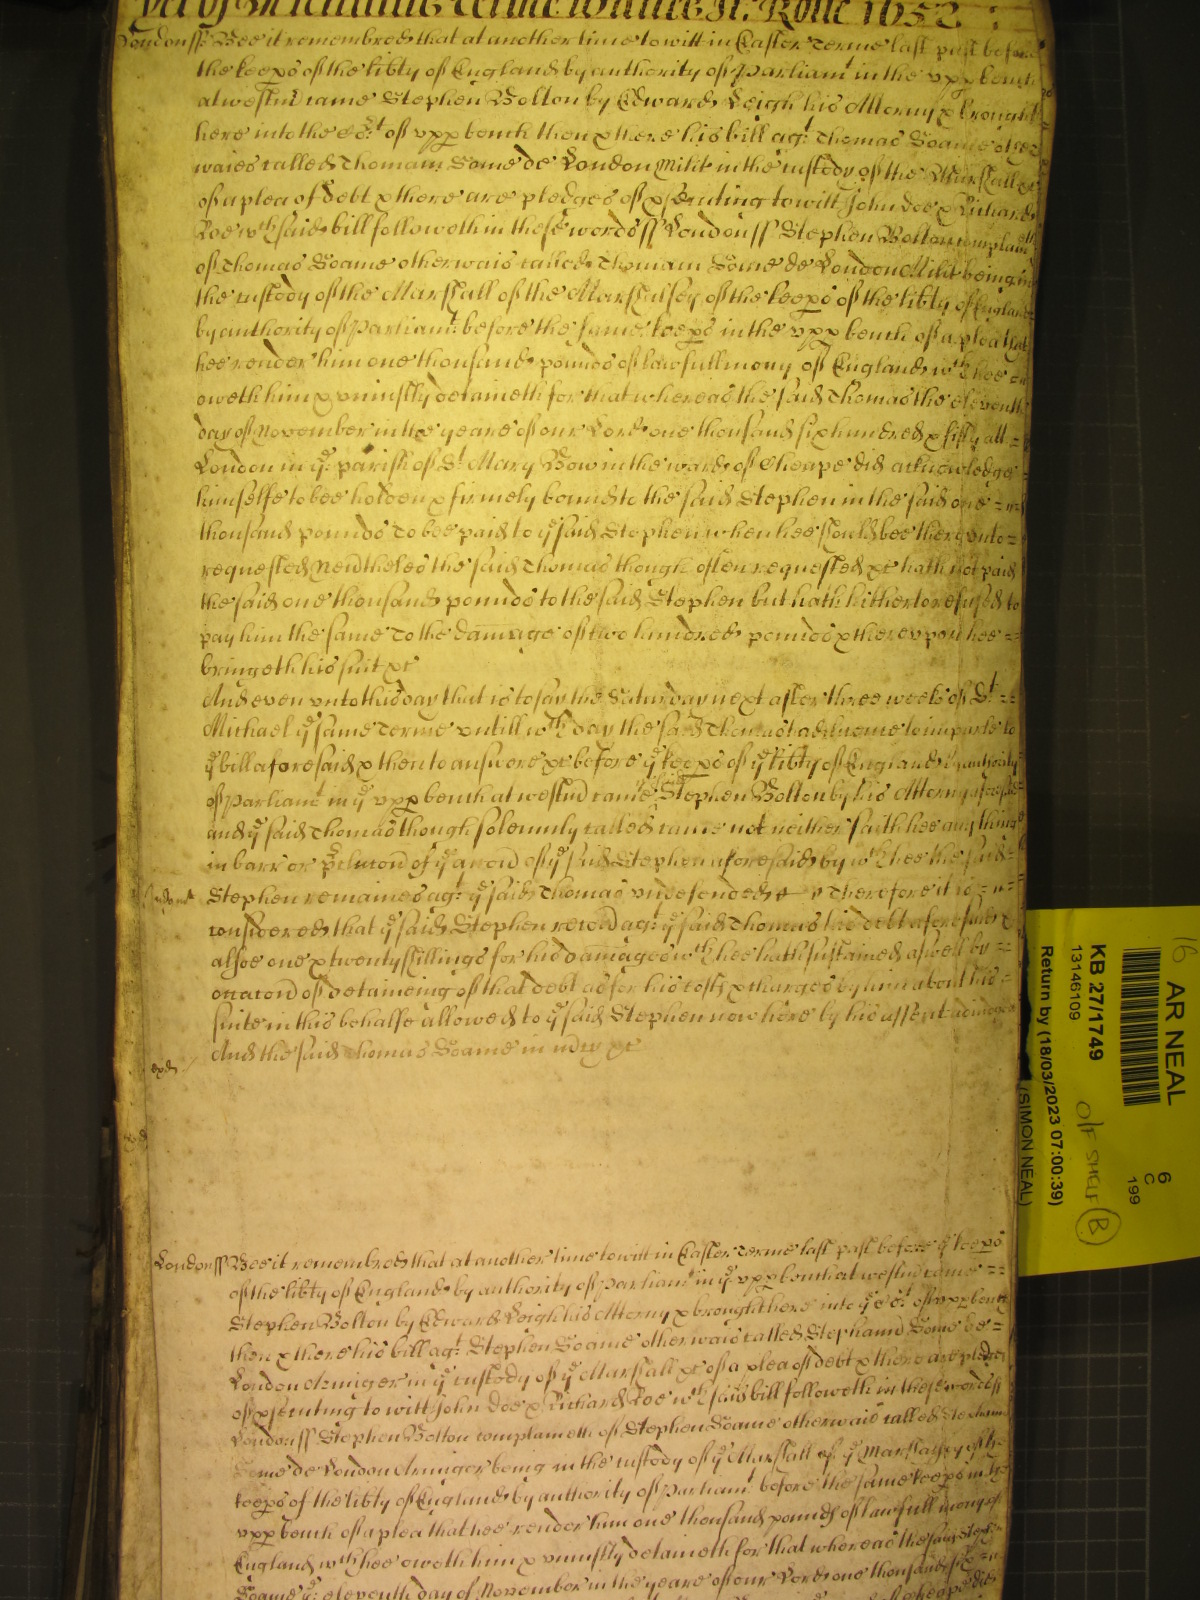 Yet of Michaellmas Terme in the Yeare 1652
Londonss Bee it remembred that at another time to witt in Easter Terme last past before
the keeprs of the libty of England by authority of Parliamt in the vpp bench
at westmr came Stephen Bolton by Edward Leigh his Attorny & brought
here into the Ct of vpp bench then & there his bill agt Thomas Soame other
waies called Thomam Some de London Milit in the custody of the Marshall &c
of a plea of debt & there are pledges of psecuting to witt John Doe & Richard
Roe wch said bill followeth in these words ss London ss Stephen Bolton complaineth
of Thomas Soame otherwais called Thomam Some de London Milit being in
the custody of the Marshall of the Marshalsey of the keeprs of the libty of England
by authority of Parliamt before the same keeprs in the vpp bench of a plea that
hee render him one thousand pounds of lawfull mony of England wch hee
oweth him & uniustly detaineth for that whereas the said Thomas the eleventh
day of November in the yeare of our Lord one thousand six hundred & fifty att =
London in ye parish of St Mary Bow in the ward of Cheape did acknowledge
himselfe to bee holden & firmely bound to the said Stephen in the said one =
thousand pounds To bee paid to ye said Stephen when hee should bee therevnto =
requested Neverthelesse the said Thomas though often requested &c hath not paid
the said one thousand pounds to the said Stephen but hath hitherto refused to
pay him the same To the damage of two hundred pounds & therevpon hee =
bringeth his suit &c
And even vnto this day that is to say the Saturday next after three weeks of St =
Michael ye same Terme vntill wch day the said Thomas had licence to imparle to
ye bill aforesaid & then to answere &c before ye keeprs of ye libty of England by authority
of Parliamt in ye vpp bench at westmr came ye said Stephen Bolton by his Attorny aforesaid
and ye said Thomas though solemnly called came not neither saith hee any thing
in barr or pclusion of ye accon of ye said Stephen aforesaid by wch hee the said =
Judgmt Stephen remaines agt ye said Thomas vndefended Therefore it is =
considered that ye said Stephen recov agt ye said Thomas his debt aforesaid &
alsoe one & twenty shillings for his damages wch hee hath sustained aswell by =
occacon of detaineing of that debt as for his costs & charges by him about his =
suite in this behalfe allowed to ye said Stephen now here by his assent adiudged
And the said Thomas Soame in mcy &c
Londonss Bee it remembred that at another time to witt in Easter Terme last past before ye keeprs
of the libty of England by authority of Parliamt in ye vpp bench at westmr came =
Stephen Bolton by Edward Leigh his Attorny & brought here into ye Ct of vpp bench
then & there his bill agt Stephen Soame otherwais called Stephanu Some de =
London Armiger in ye custody of ye Marshall &c of a plea of debt & there are pledges
of psecuting to witt John Doe & Richard Roe wch said bill followeth in these words ss
London ss Stephen Bolton complaineth of Stephen Soame otherwais called Stephanu
Some de London Armiger being in the custody of ye Marshall of ye Marshalsey of the
keeprs of the libty of England by authority of Parliamt before the same keeprs in the
vpp bench of a plea that hee render him one thousand pounds of lawfull mony of
England wch hee oweth him & uniustly detaineth for that whereas the said Stephen
Soame ye eleventh day of November in the yeare of our Lord one thousand six
16
AR NEAL
KB 27/1749
13146109
Return by (18/03/2023 07:00:39)
(SIMON NEAL)
O/F SHELF B
6
C
199